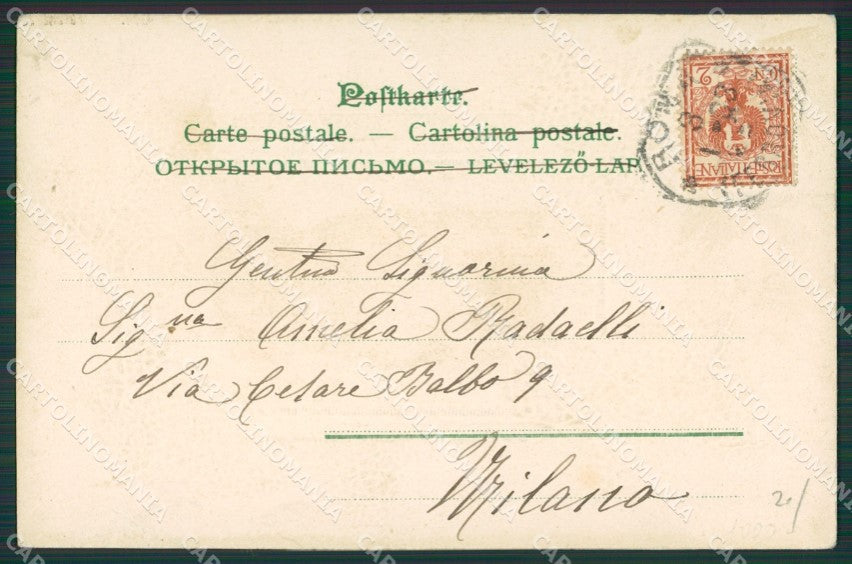 Postkarte.
Carte postale. — Cartolina postale.
ОТКРЫТОЕ ПИСЬМО. — LEVELEZŐ-LAP
Gentma Signorina
Signa Amelia Radaelli
Via Cesare Balbo 9
Milano
2/
CARTOLINOMANIA